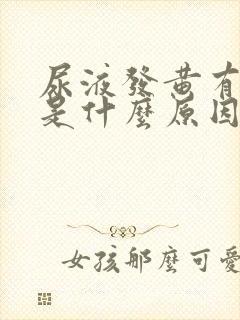 尿液發黃有
是什麼原因
女孩那麼可愛